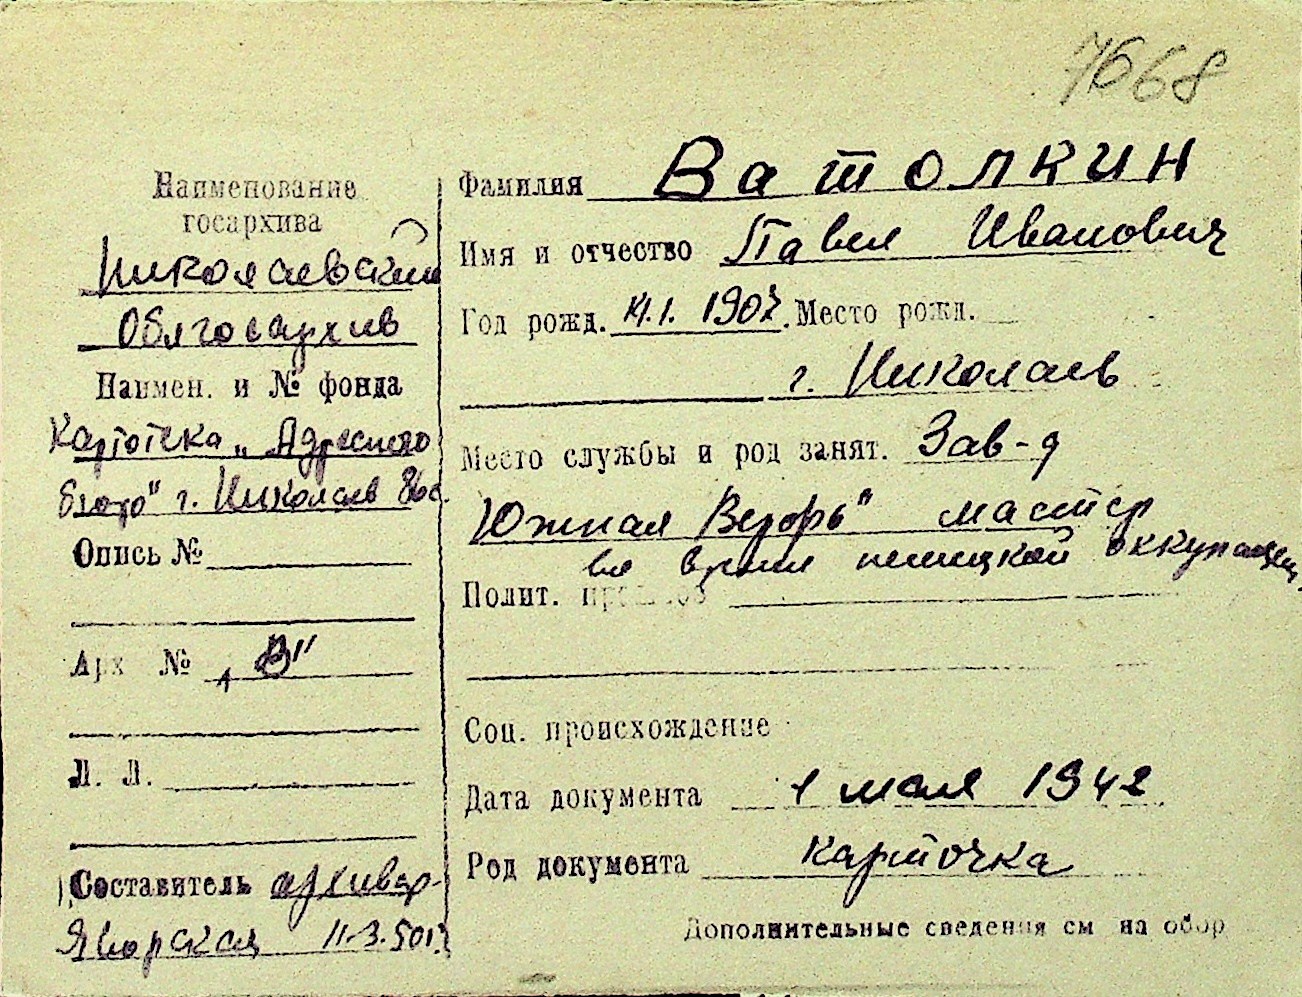 7668
Наименование
госархива
Николаевский
Облгосархив
Наимен. и № фонда
Картотека „Адресного
бюро" г. Николаев
Опись №
Арх №  „В"
Л. Л.
Составитель архивар-
Яворская 11-3.50г.
Фамилия Ватолкин
Имя и отчество Павел Иванович
Год рожд. 1907. Место рожд.
г. Николаев
Место службы и род занят. Зав-д
Южная Верфь" мастер
во время немецкой оккупации
Полит.
Соц. происхождение
Дата документа 1 мая 1942
Род документа карточка
Дополнительные сведения см на обор